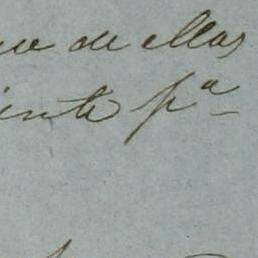 que de ellas
inte pª